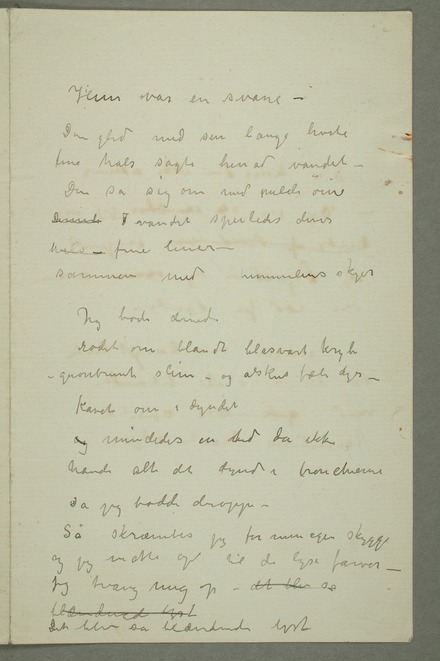 Hun var en svane –
Den gled med sin lange hvide
fine hals sagte henad vandet –
Den så sig om med milde öine
I vandet speiledes dens
hals – fine linier –
sammen med himmelens skyer
Jeg bode dernede
rodet om blandt blåsvart kryb
– grønbrunt slim – og alskens fæle dyr –
om i dyndet
og mindedes en tid da ikke
havde alt det dynd i bronchierne
da jeg bodde deroppe –
Så skræmtes jeg for min egen skygge
og jeg måtte op til de lyse farver –
Jeg tvang mig op – det blev så
blændende lyst
Det blev så blændende lyst